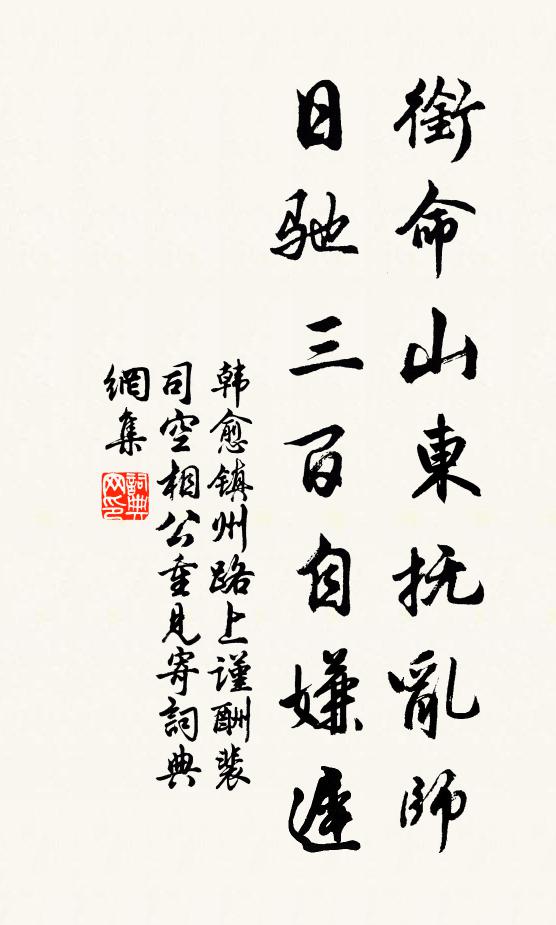 銜命山東抚亂師
日驰三百自嫌遲
韩愈镇州路上谨酬裴
司空相公重見寄詞典
網集
詞典
网印